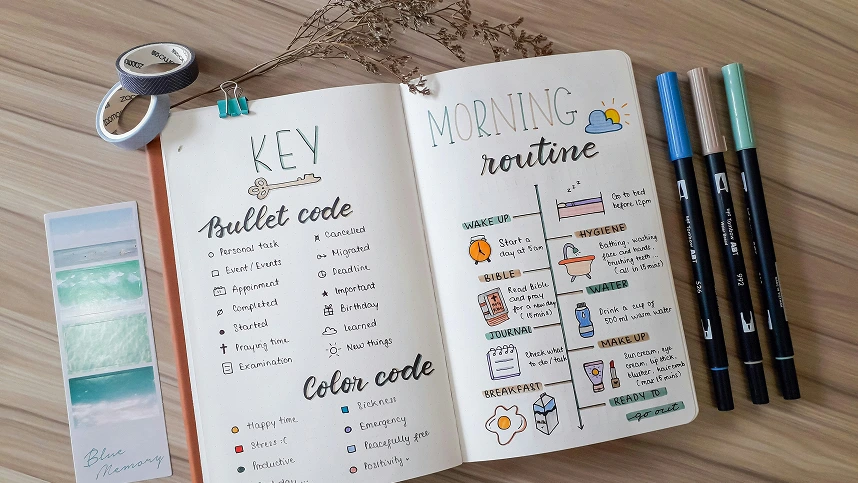 KEY
Bullet code
Personal task
Event / Events
Appoinment
Completed
Started
Praying time
Examination
Cancelled
Migrated
Deadline
Important
Birthday
Learned
New things
Color code
Happy time
Stress :(
Productive
Sickness
Emergency
Peacefully free
Positivity
MORNING
routine
zzz
Go to bed
before 12pm
WAKE UP
Start a
day at 5am
HYGIENE
Bathing, washing
face and hands,
brushing teeth...
(all in 15 mins)
BIBLE
Read Bible
and pray
for a new day
(15 mins)
WATER
Drink a cup of
500ml warm water
JOURNAL
Check what
to do / talk
MAKE UP
Sun cream, eye
cream, lipstick,
blusher, hair comb
(max 15 mins)
BREAKFAST
READY TO
go out
Blue
Memory
Tombow ABT
526
992